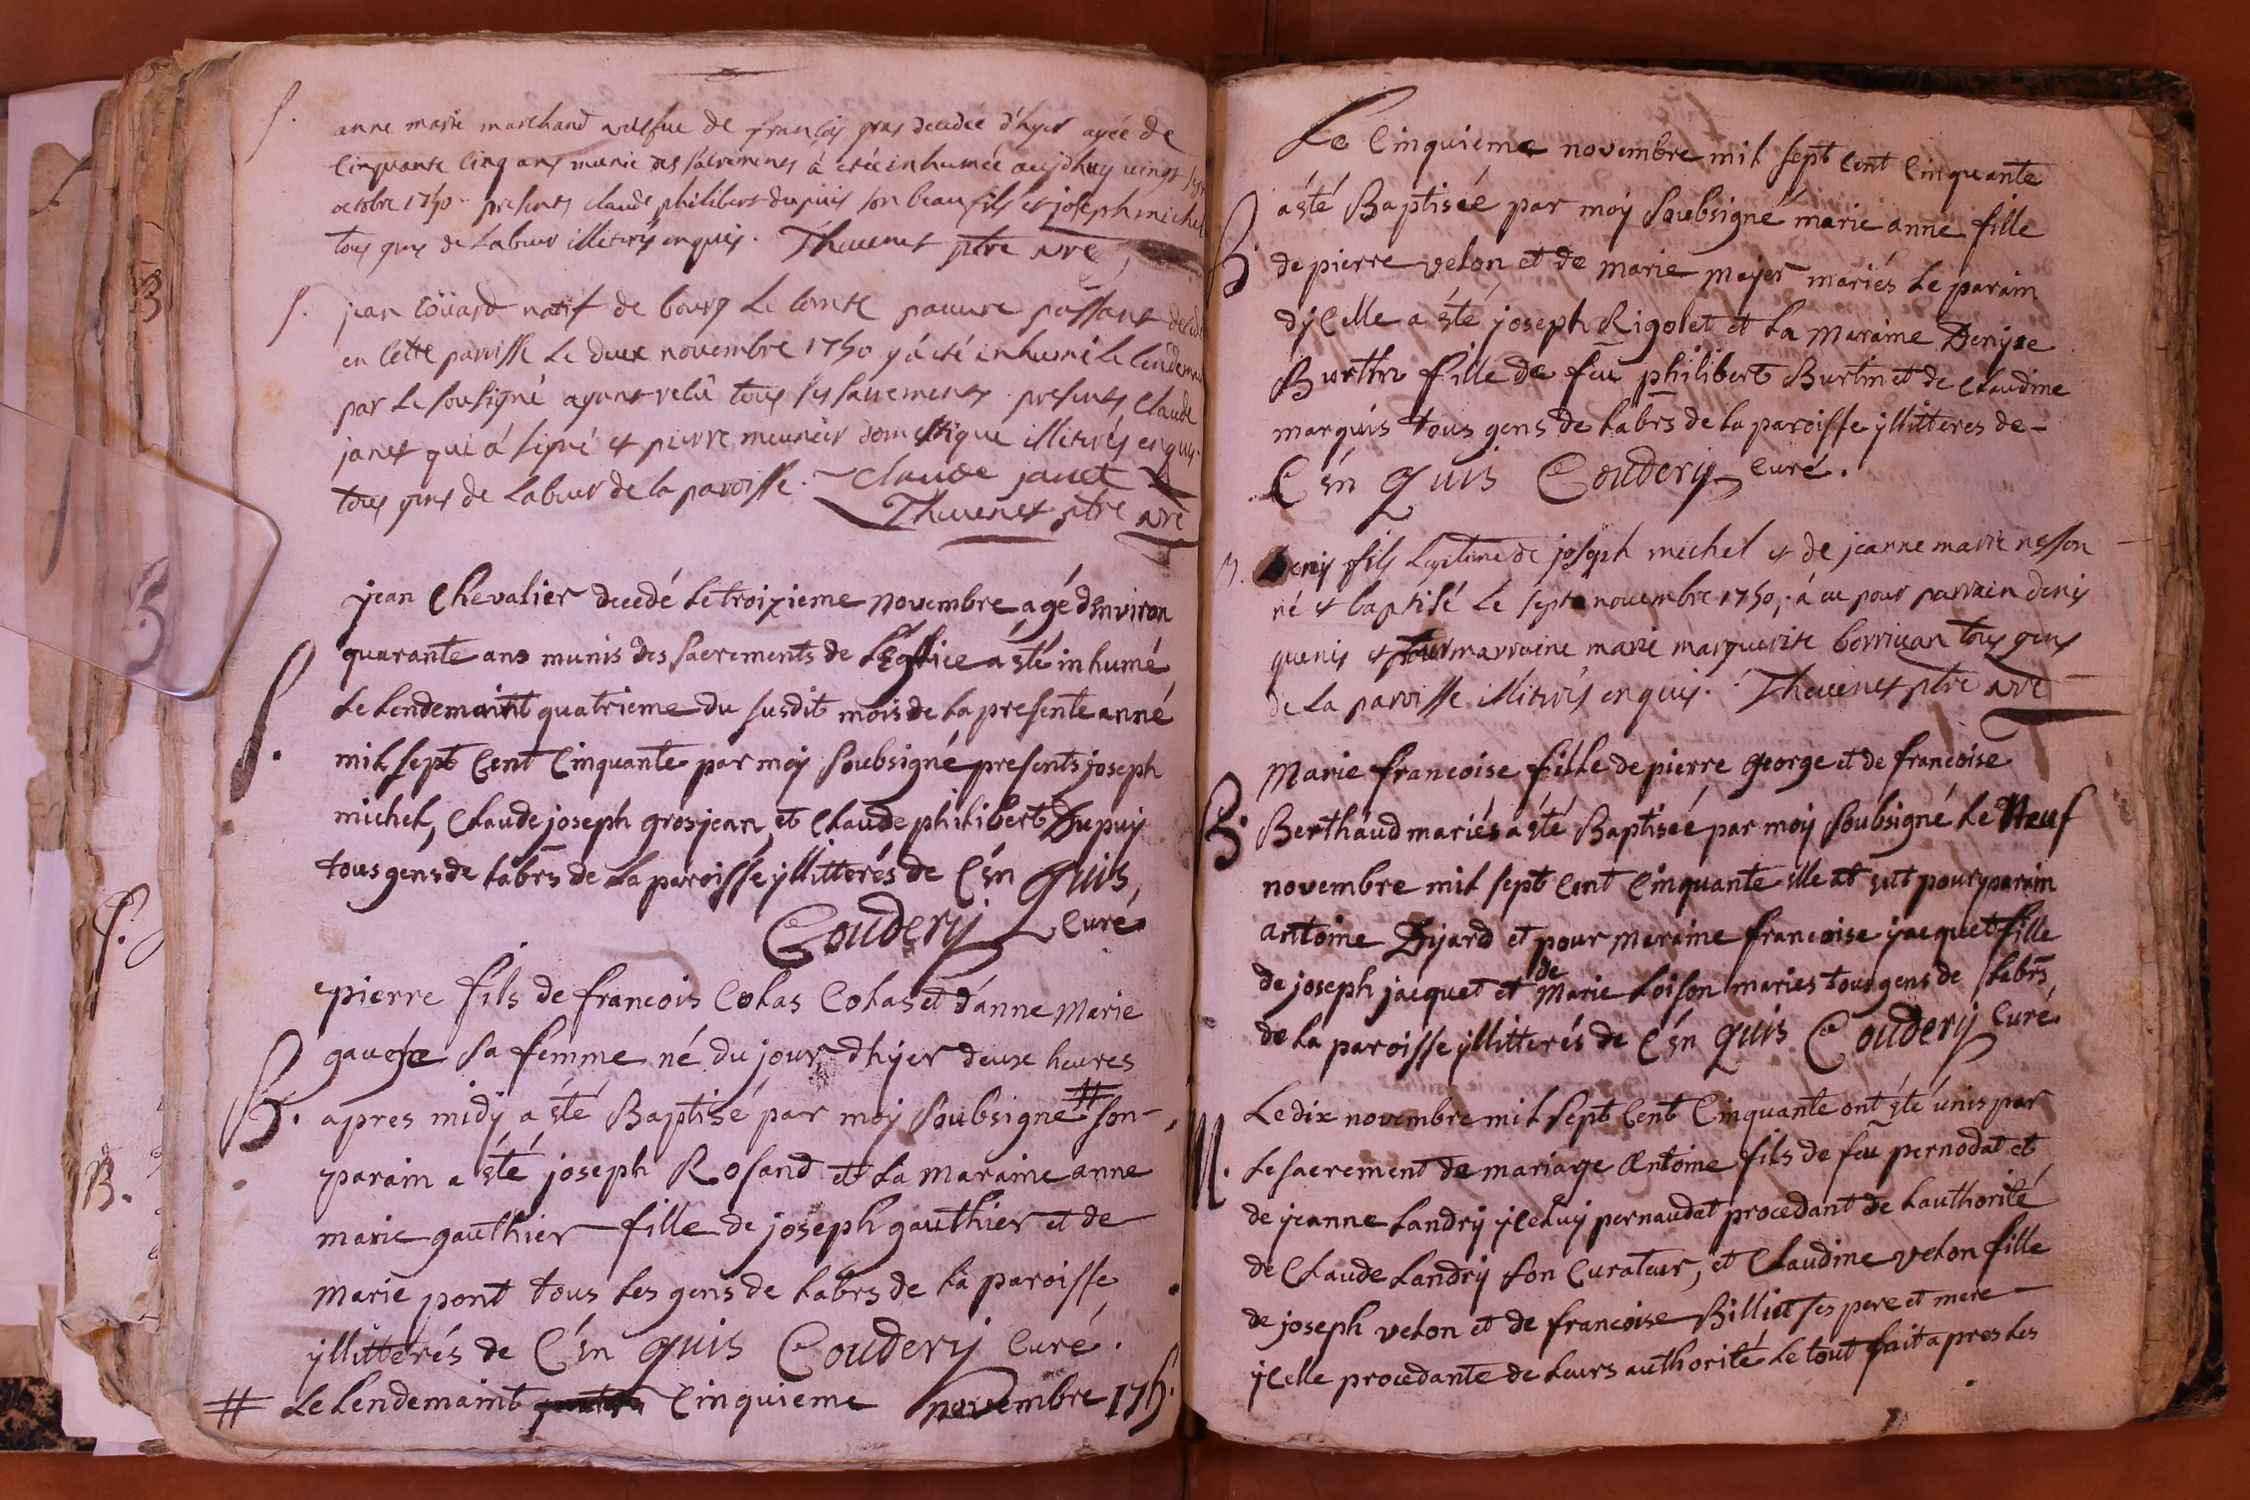 S.
anne marie marchand vefue de françois gras decedée d'hyer agée de
cinquante cinq ans munie des sacrements à etée inhumée aujdhuy vingt
octobre 1750. presents claude philibert dupuis son beau fils et joseph michel
tous gens de labeur illiterés enquis. Thevenet ptre vre
S.
jean coüard natif de bourg le comte pauure passant decedé
en cette paroisse le deux novembre 1750 y à eté inhumé le lendemain
par le sousigné ayant reçû tous ses sacrements presents claude
janet qui à signé et pierre meunier domestique illiterés enquis.
tous gens de labeur de la paroisse. Claude janet
Thevenet ptre vre
jean Chevalier decedé le troizieme novembre agé d'Environ
quarante ans munis des sacrements de l'Eglice a êté inhumé
S.
le lendemaint quatrieme du susdit mois de la presente anné
mil sept cent cinquante par moy soubsigné presents joseph
michel, claude joseph grosjean, et claude philibert Dupuy
tous gens de labrs de la paroisse yllitterés de C'én quis,
Coudery Curé
pierre fils de francois Colas Colas et d'anne Marie
gauche sa femme né du jour dhyer deux heures
B.
apres midy a êté Baptisé par moy soubsigné # son
parain a êté joseph Rosand et la maraine anne
marie gauthier fille de joseph gauthier et de
marie pont tous les gens de labrs de la paroisse
yllitterés de C'én quis Coudery Curé.
# le lendemaint cinquieme novembre 175.
Le Cinquieme novembre mil sept cent cinquante
a êté Baptiséé par moy soubsigné marie anne fille
B.
de pierre velon et de marie mayer mariés le parain
dycelle a êté joseph Rigolet et la maraine Denyse
Burtin fille de feu philibert Burtin et de claudine
marquis tous gens de labrs de la paroisse yllitteres de
C'én quis Coudery Curé.
B.
Denis fils legitime de joseph michel et de jeanne marie nesson
né et baptisé le sept novembre 1750, à eu pour parrain denis
quenis et pour marraine marie marguerite borrivan tous gens
de la paroisse illiterés enquis. Thevenet ptre vre
Marie francoise fille de pierre george et de francoise
B.
Berthaud mariés a êté Baptiséé par moy soubsigné le Neuf
novembre mil sept cent cinquante elle at eut pour parain
antoine Dyard et pour meraine francoise yacquet fille
de joseph jacquet et de Marie loison maries tous gens de labrs,
de la paroisse yllitterés de C'én quis Coudery Curé
Le dix novembre mil sept cent cinquante ont êté unis par
M.
le sacrement de mariage Antoine fils de feu pernodat et
de jeanne landry yceluy pernaudat procedant de lauthorité
de Claude landry son curateur, et Claudine velon fille
de joseph velon et de francoise Billiet ses pere et mere
ycelle procedante de leurs authorité le tout fait apres les
B.
S.
B.